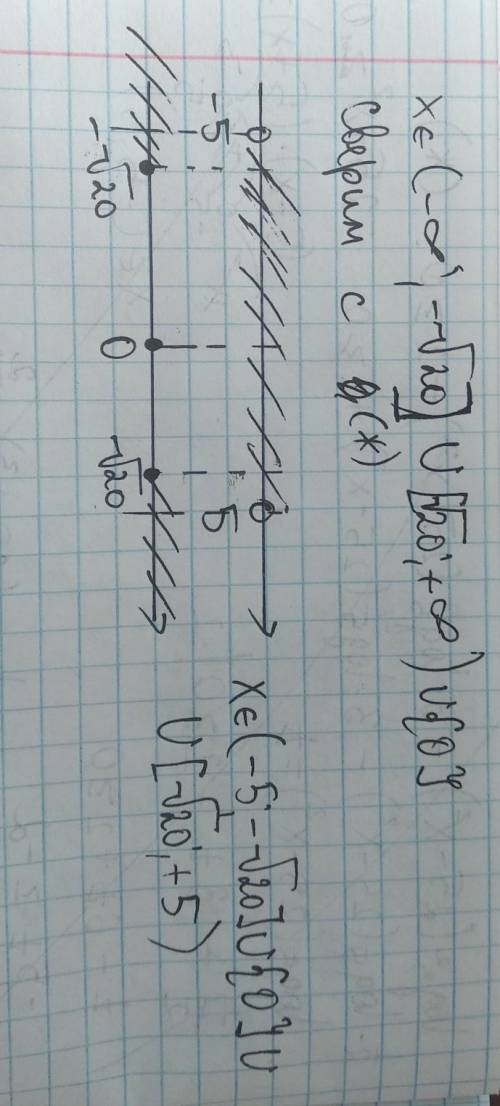 x∈(-∞; -√20] ∪ [√20; +∞) ∪ {0}
Сверим с g(x)
-5 5
-√20 0 √20
x∈(-5; -√20] ∪ {0} ∪
∪ [√20; +5)